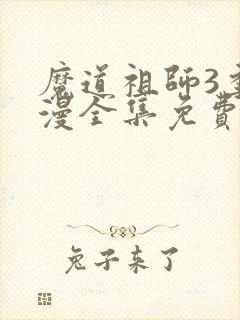 魔道祖師3季
漫全集免費
兔子来了